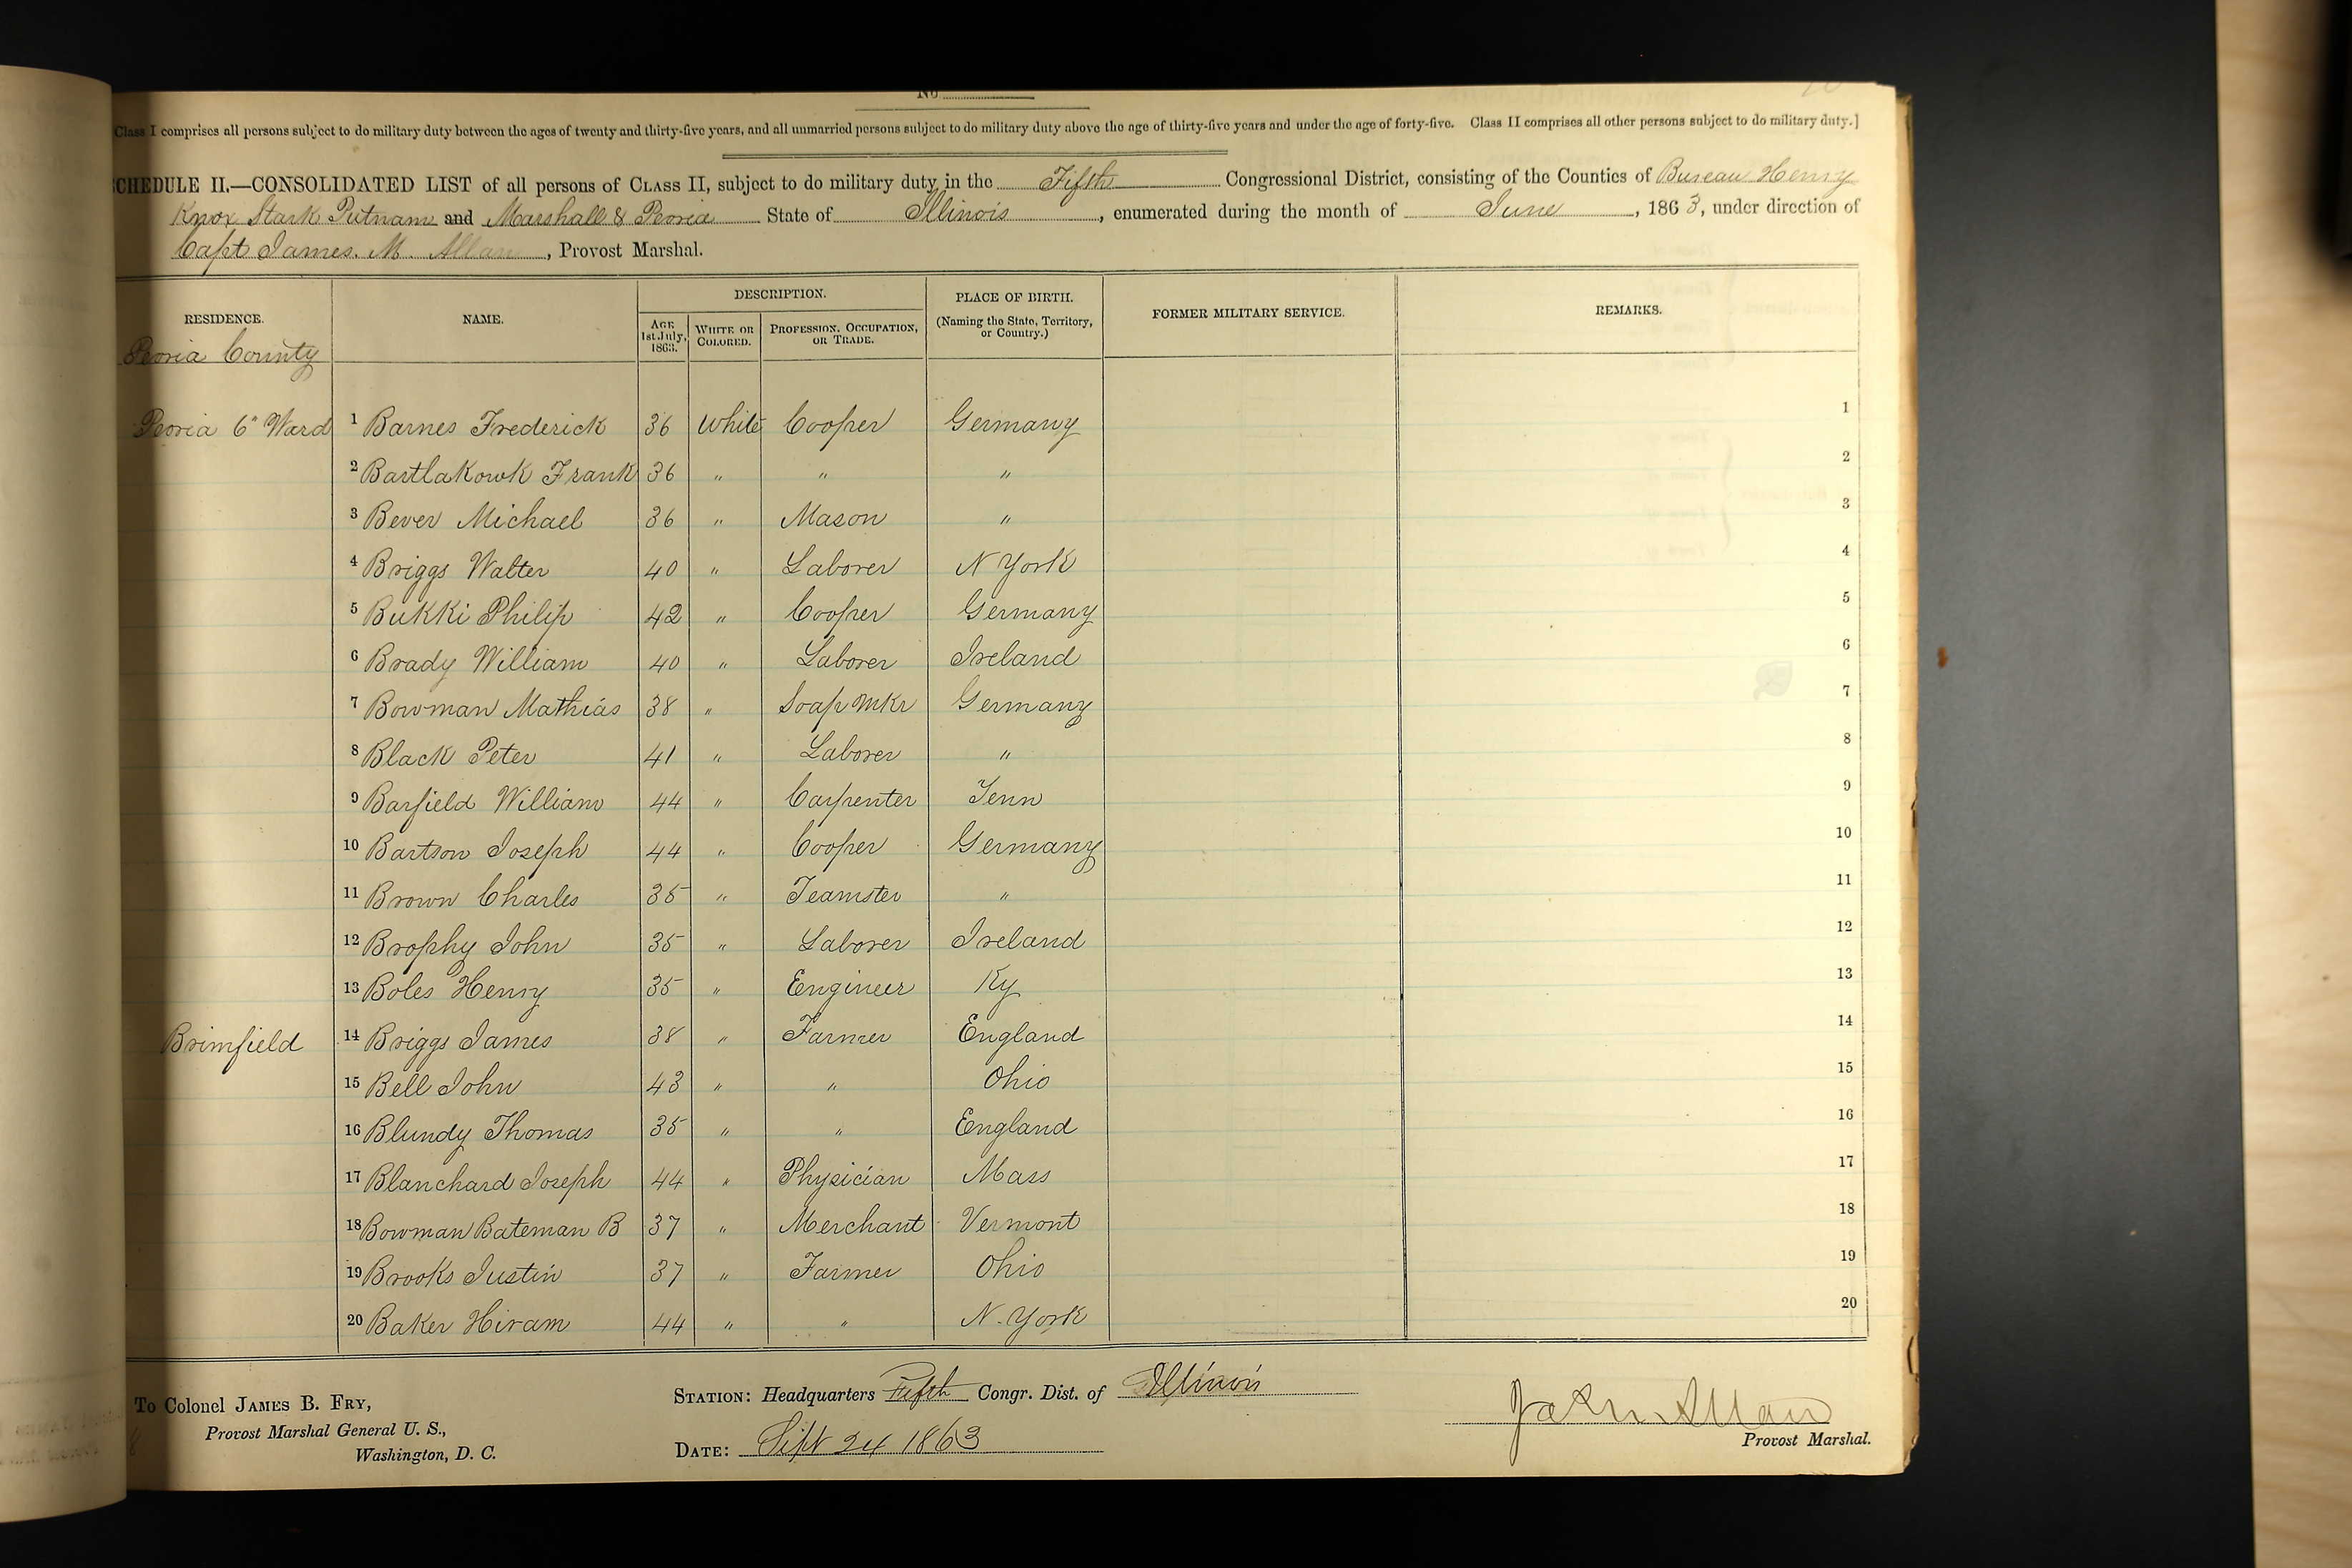 No
Class I comprises all persons subject to do military duty between the ages of twenty and thirty-five years, and all unmarried persons subject to do military duty above the age of thirty-five years and under the age of forty-five. Class II comprises all other persons subject to do military duty.]
CHEDULE II.—CONSOLIDATED LIST of all persons of CLASS II, subject to do military duty in the Fifth Congressional District, consisting of the Counties of Bureau Henry
Knox Stark Putnam and Marshall & Peoria State of Illinois, enumerated during the month of June, 1863, under direction of
Capt James. M. Allan, Provost Marshal.
RESIDENCE. NAME. DESCRIPTION. PLACE OF BIRTH. (Naming the State, Territory, or Country.) FORMER MILITARY SERVICE. REMARKS.
AGE 1st July, 1863. WHITE OR COLORED. PROFESSION, OCCUPATION, OR TRADE.
Peoria County
Peoria 6" Ward 1 Barnes Frederick 36 White Cooper Germany 1
2 Bartlakowk Frank 36 " " " 2
3 Bever Michael 36 " Mason " 3
4 Briggs Walter 40 " Laborer N York 4
5 Bukki Philip 42 " Cooper Germany 5
6 Brady William 40 " Laborer Ireland 6
7 Bowman Mathias 38 " Soap Mkr Germany 7
8 Black Peter 41 " Laborer " 8
9 Barfield William 44 " Carpenter Tenn 9
10 Bartson Joseph 44 " Cooper Germany 10
11 Brown Charles 35 " Teamster " 11
12 Brophy John 35 " Laborer Ireland 12
13 Boles Henry 35 " Engineer Ky 13
Brimfield 14 Briggs James 38 " Farmer England 14
15 Bell John 43 " " Ohio 15
16 Blundy Thomas 35 " " England 16
17 Blanchard Joseph 44 " Physician Mass 17
18 Bowman Bateman B 37 " Merchant Vermont 18
19 Brooks Justin 37 " Farmer Ohio 19
20 Baker Hiram 44 " " N. York 20
To Colonel JAMES B. FRY,
Provost Marshal General U. S.,
Washington, D. C.
STATION: Headquarters Fifth Congr. Dist. of Illinois
DATE: Sept 24 1863
Jas M Allan
Provost Marshal.